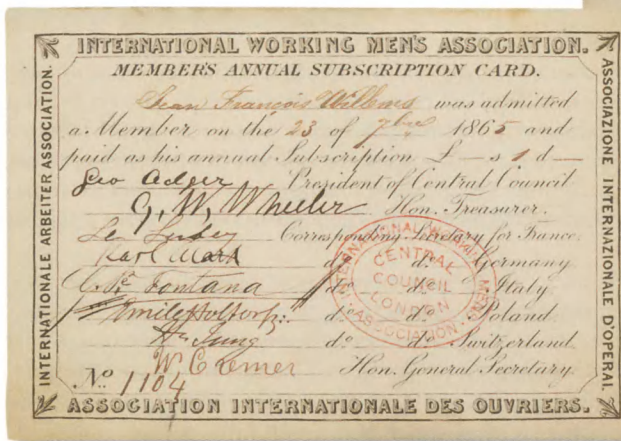 INTERNATIONAL WORKING MEN'S ASSOCIATION.
MEMBER'S ANNUAL SUBSCRIPTION CARD.
Jean François Willems was admitted
a Member on the 23 of 7bre 1865 and
paid as his annual Subscription £ — s 1 d —
Geo Odger President of Central Council
G. W. Wheeler Hon. Treasurer.
Le Lubez Corresponding Secretary for France
Karl Marx do. do. Germany
C. Pe Fontana do. do. Italy
Emile Holtorp do. do. Poland
H. Jung do. do. Switzerland
W R Cremer Hon. General Secretary.
No. 1104
ASSOCIATION INTERNATIONALE DES OUVRIERS.
INTERNATIONALE ARBEITER ASSOCIATION.
ASSOCIAZIONE INTERNAZIONALE D'OPERAI.
INTERNATIONAL WORKING MENS ASSOCIATION
CENTRAL
COUNCIL
LONDON